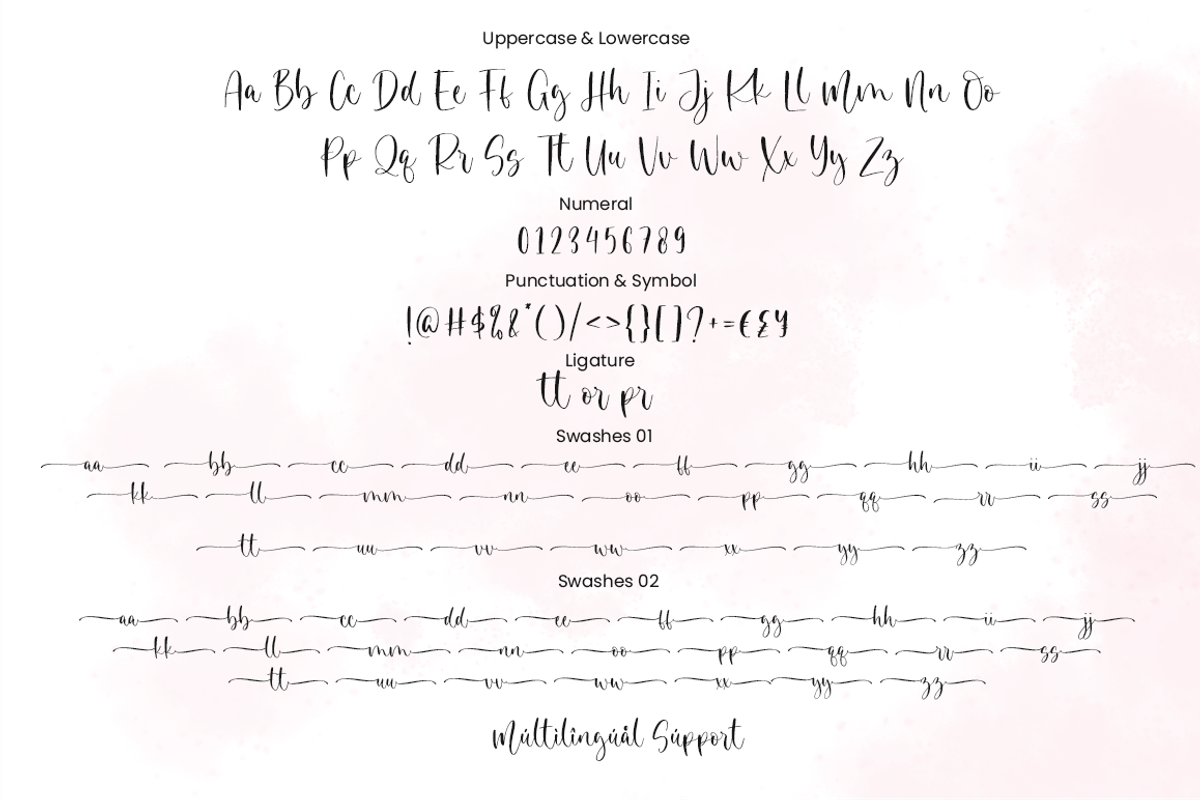 Uppercase & Lowercase
Aa Bb Cc Dd Ee Ff Gg Hh Ii Jj Kk Ll Mm Nn Oo
Pp Qq Rr Ss Tt Uu Vv Ww Xx Yy Zz
Numeral
0123456789
Punctuation & Symbol
!@#$%&*()/<>{}[]?+=€£¥
Ligature
tt or pr
Swashes 01
aa bb cc dd ee ff gg hh ii jj
kk ll mm nn oo pp qq rr ss
tt uu vv ww xx yy zz
Swashes 02
aa bb cc dd ee ff gg hh ii jj
kk ll mm nn oo pp qq rr ss
tt uu vv ww xx yy zz
Múltilîngúål Súpport